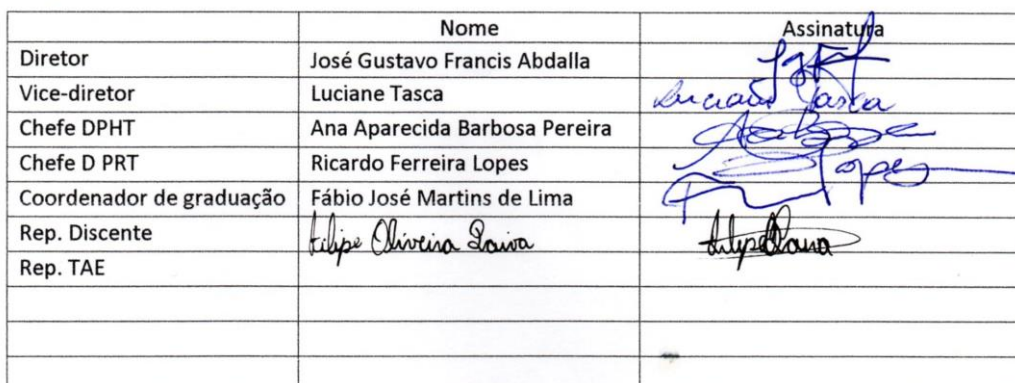 Nome Assinatura
Diretor José Gustavo Francis Abdalla
Vice-diretor Luciane Tasca Luciane Tasca
Chefe DPHT Ana Aparecida Barbosa Pereira
Chefe D PRT Ricardo Ferreira Lopes Lopes
Coordenador de graduação Fábio José Martins de Lima
Rep. Discente Filipe Oliveira Paiva
Rep. TAE